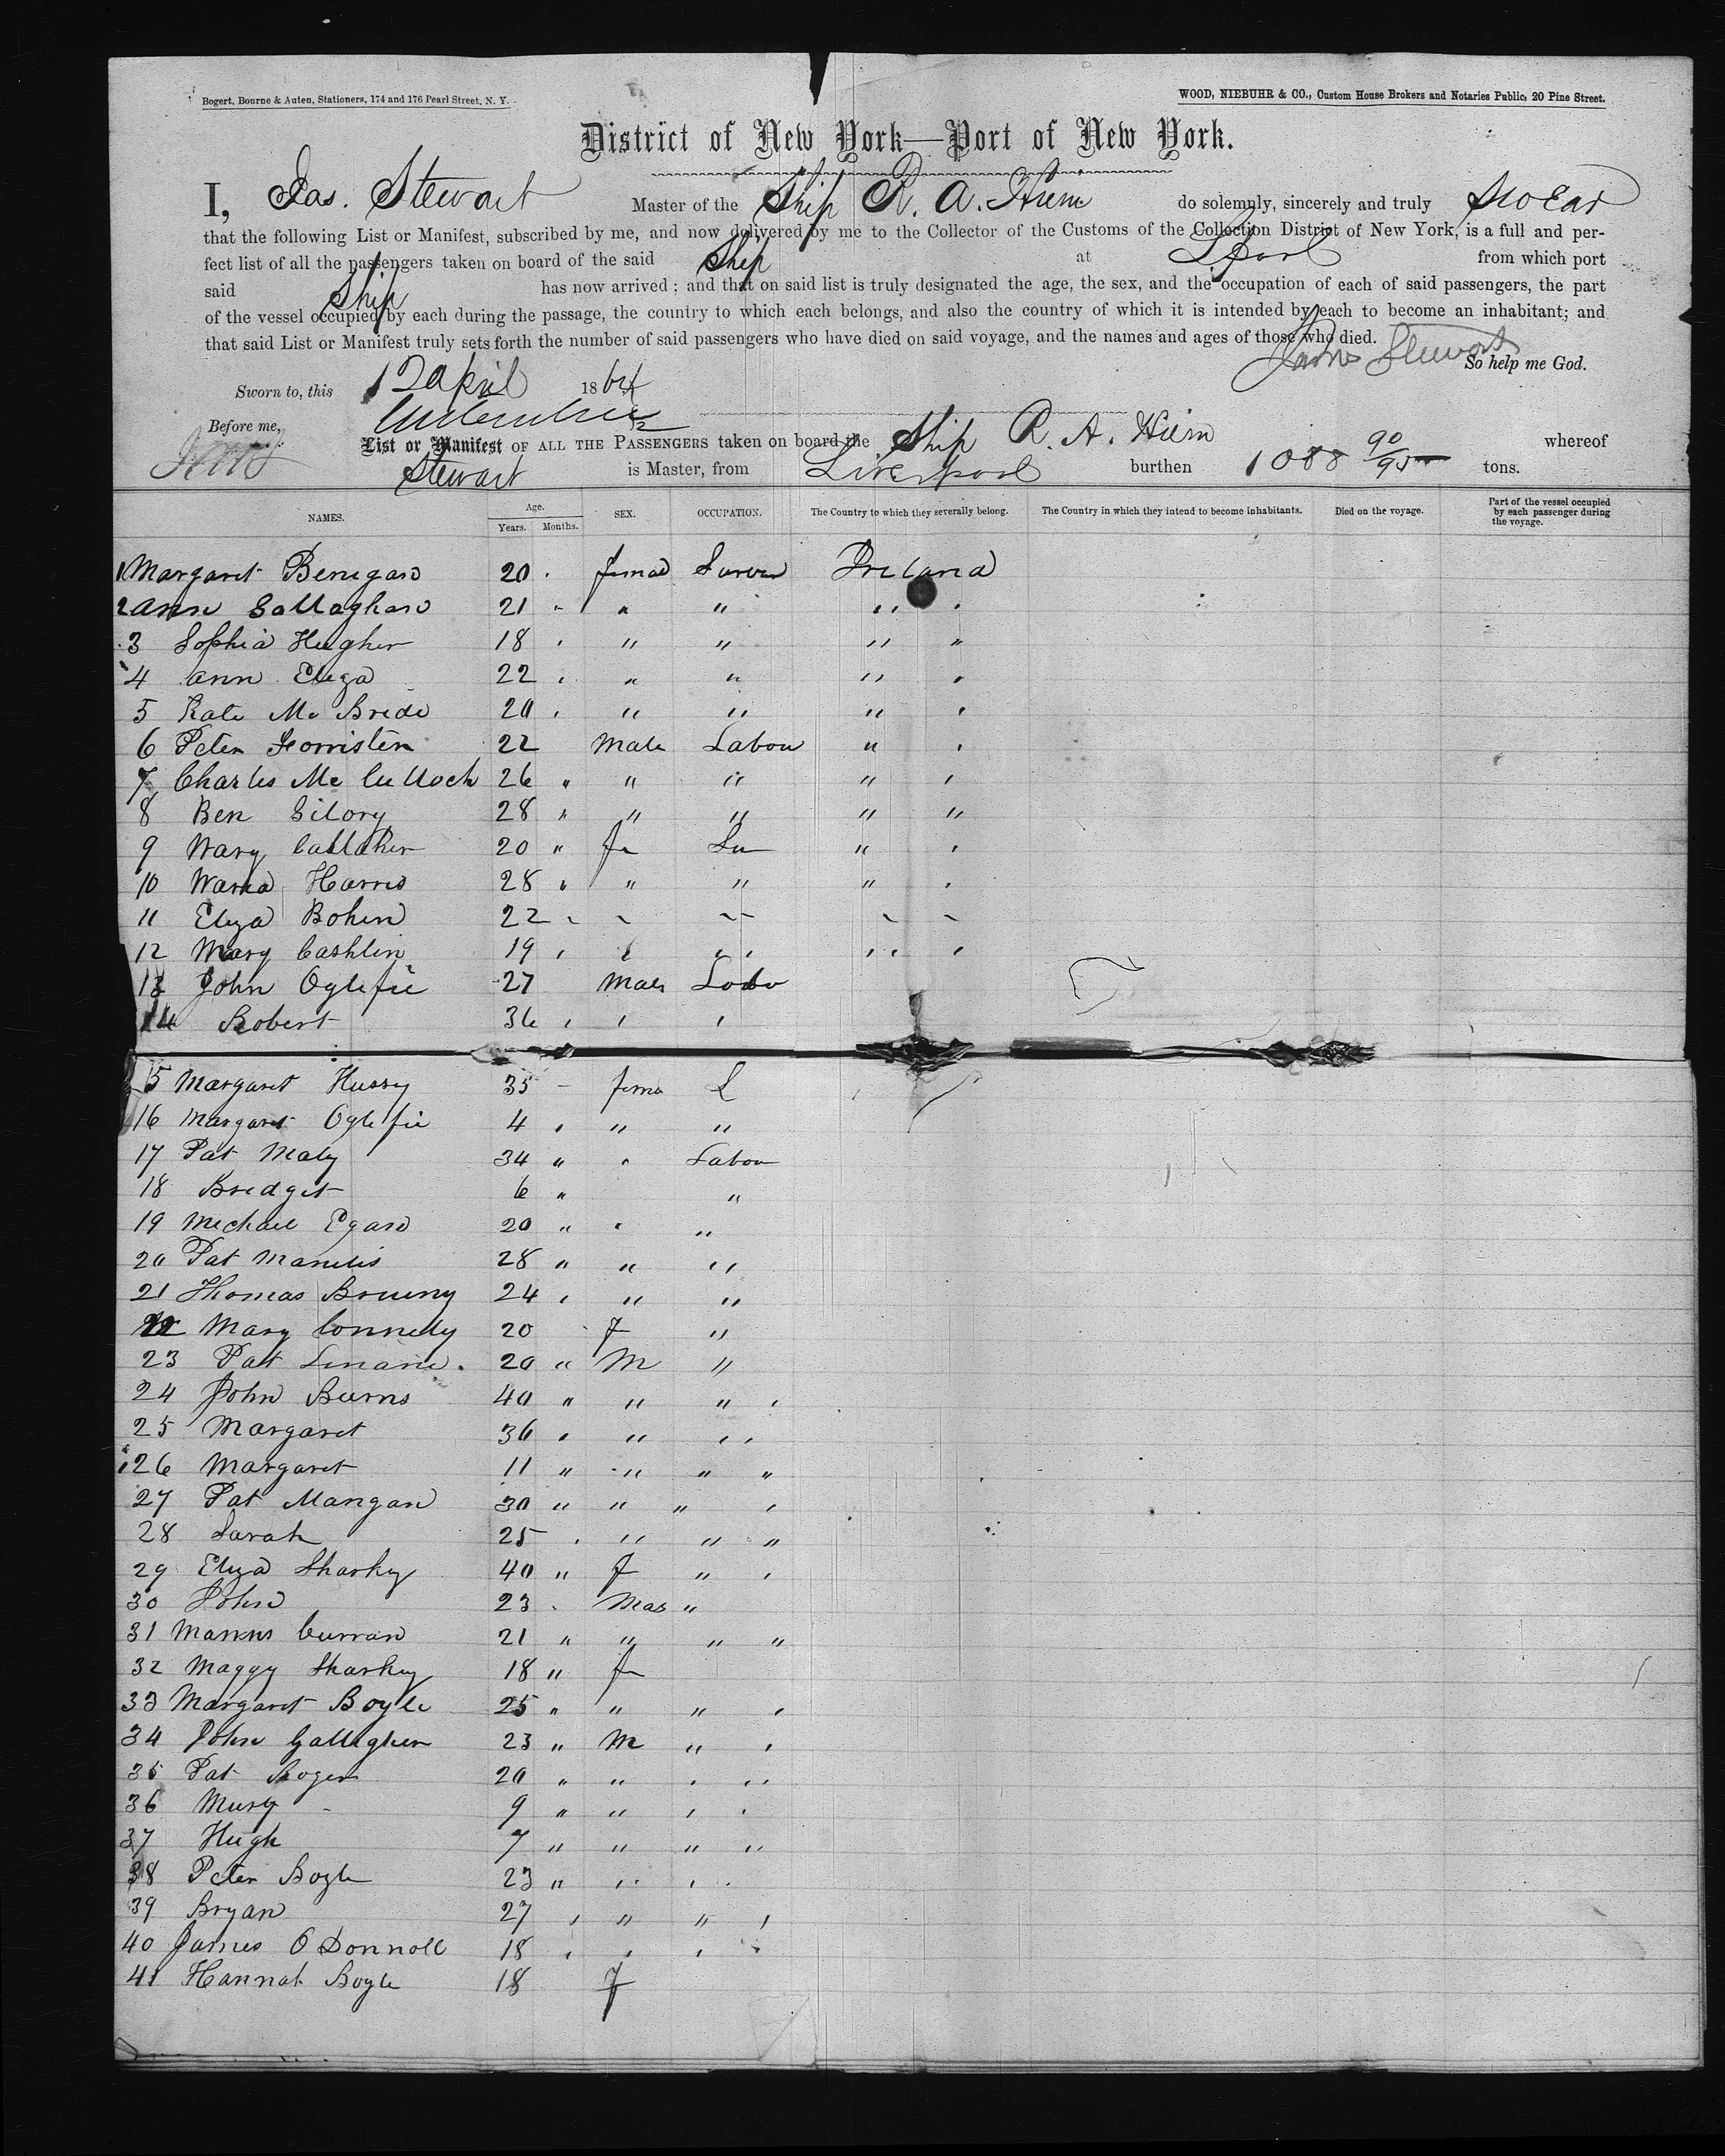 Bogert, Bourne & Auten, Stationers, 174 and 176 Pearl Street, N. Y.
WOOD, NIEBUHR & CO., Custom House Brokers and Notaries Public, 20 Pine Street.
District of New York—Port of New York.
I, Jas. Stewart Master of the Ship R. A. Hiern do solemnly, sincerely and truly swear
that the following List or Manifest, subscribed by me, and now delivered by me to the Collector of the Customs of the Collection District of New York, is a full and per-
fect list of all the passengers taken on board of the said Ship at Lpool from which port
said Ship has now arrived; and that on said list is truly designated the age, the sex, and the occupation of each of said passengers, the part
of the vessel occupied by each during the passage, the country to which each belongs, and also the country of which it is intended by each to become an inhabitant; and
that said List or Manifest truly sets forth the number of said passengers who have died on said voyage, and the names and ages of those who died.
James Stewart So help me God.
Sworn to, this 12 April 1864
Before me,
List or Manifest OF ALL THE PASSENGERS taken on board the Ship R. A. Hiern whereof
Stewart is Master, from Liverpool burthen 1088 90/95 tons.
NAMES. Age. Years. Months. SEX. OCCUPATION. The Country to which they severally belong. The Country in which they intend to become inhabitants. Died on the voyage. Part of the vessel occupied by each passenger during the voyage.
1 Margaret Benigan 20 " femal Serven Ireland
2 Ann Gallaghan 21 " " " " "
3 Sophia Hugher 18 " " " " "
4 Ann Eliza 22 " " " " "
5 Kate Mc Bride 20 " " " " "
6 Peter Forristen 22 Male Labour " "
7 Charles Mc Culloch 26 " " " " "
8 Ben Gilory 28 " " " " "
9 Mary Callaher 20 " fe Su " "
10 Maria Harris 28 " " " " "
11 Eliza Bohen 22 " " " " "
12 Mary Cashlin 19 " " " " "
13 John Oglefie 27 Male Labo
14 Robert 36 " " "
15 Margaret Hussy 35 – fema L
16 Margaret Oglefie 4 " " "
17 Pat Maly 34 " " Labou
18 Bridget 6 " "
19 Michael Egan 20 " " "
20 Pat Manelis 28 " " "
21 Thomas Brueny 24 " " "
22 Mary Connelly 20 F "
23 Pat Linane 20 " M "
24 John Burns 40 " " " "
25 Margaret 36 " " "
26 Margaret 11 " " " "
27 Pat Mangan 30 " " " "
28 Sarah 25 " " " "
29 Eliza Sharky 40 " F " "
30 John 23 " Mas "
31 Manus Curran 21 " " " "
32 Maggy Sharky 18 " fe
33 Margaret Boyle 25 " " " "
34 John Gallagher 23 " M " "
35 Pat Roger 20 " " " "
36 Mary 9 " " " "
37 Hugh 7 " " " "
38 Peter Boyle 23 " " "
39 Bryan 27 " " " "
40 James O Donnoll 18 " " " "
41 Hannah Boyle 18 F